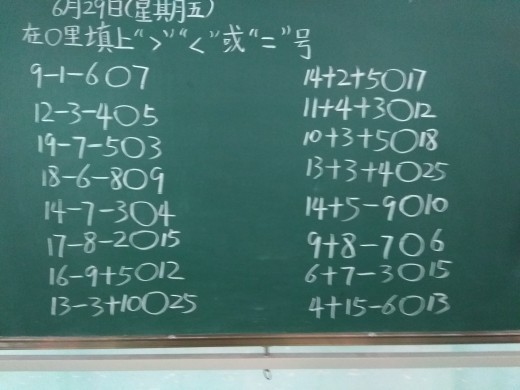 6月29日(星期五)
在○里填上“>”“<”或“=”号
9-1-6○7
12-3-4○5
19-7-5○3
18-6-8○9
14-7-3○4
17-8-2○15
16-9+5○12
13-3+10○25
14+2+5○17
11+4+3○12
10+3+5○18
13+3+4○25
14+5-9○10
9+8-7○6
6+7-3○15
4+15-6○13